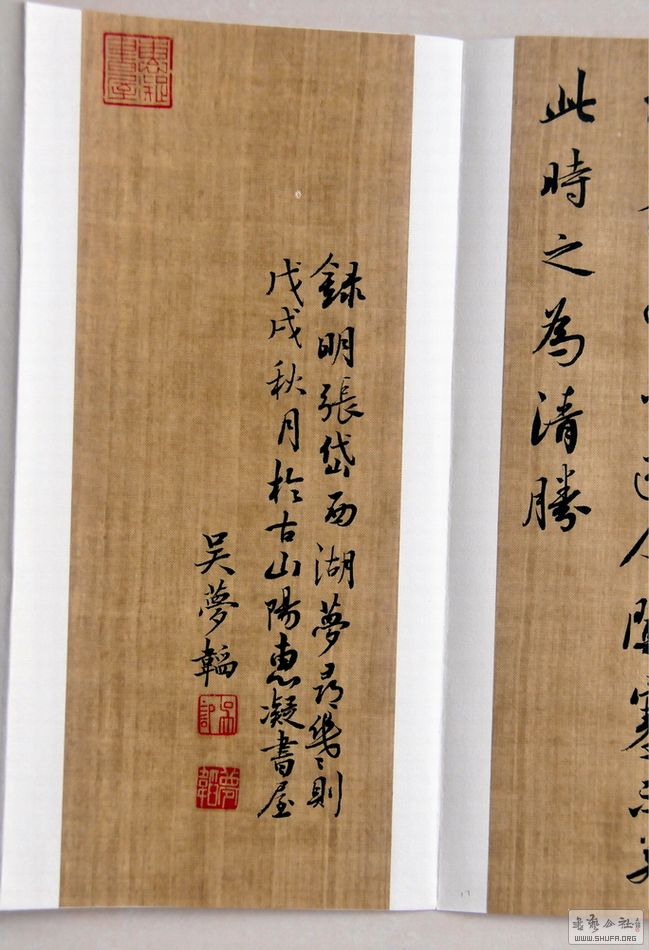 此時之為清勝
録明張岱西湖夢尋幾則
戊戌秋月於古山陽惠凝書屋
吴夢韜
惠凝書屋
吳印
夢韜
書藝公社
WWW.SHUFA.ORG